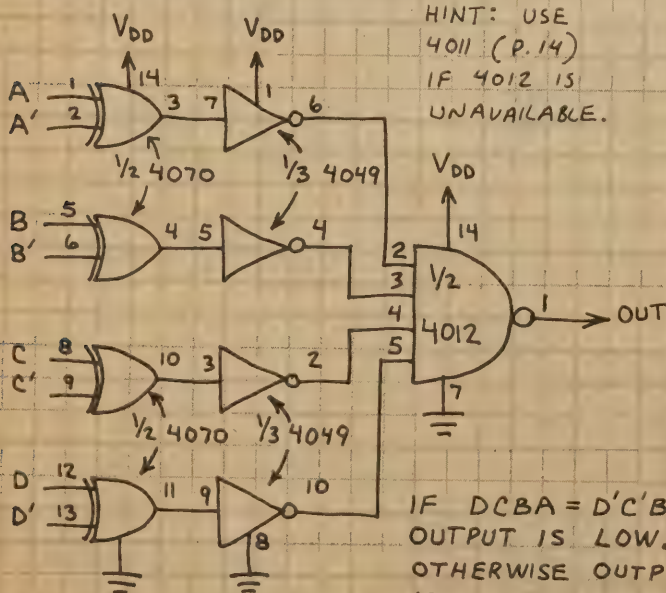 HINT: USE
4011 (P.14)
IF 4012 IS
UNAVAILABLE.
VDD
VDD
14
1
A 1
A' 2
3 7
6
1/2 4070
1/3 4049
VDD
B 5
B' 6
4 5
4
14
2
1/2
3
4
4012
5
1
OUT
7
C 8
C' 9
10 3
2
1/2 4070
1/3 4049
D 12
D' 13
11 9
10
8
IF DCBA = D'C'B
OUTPUT IS LOW.
OTHERWISE OUTP